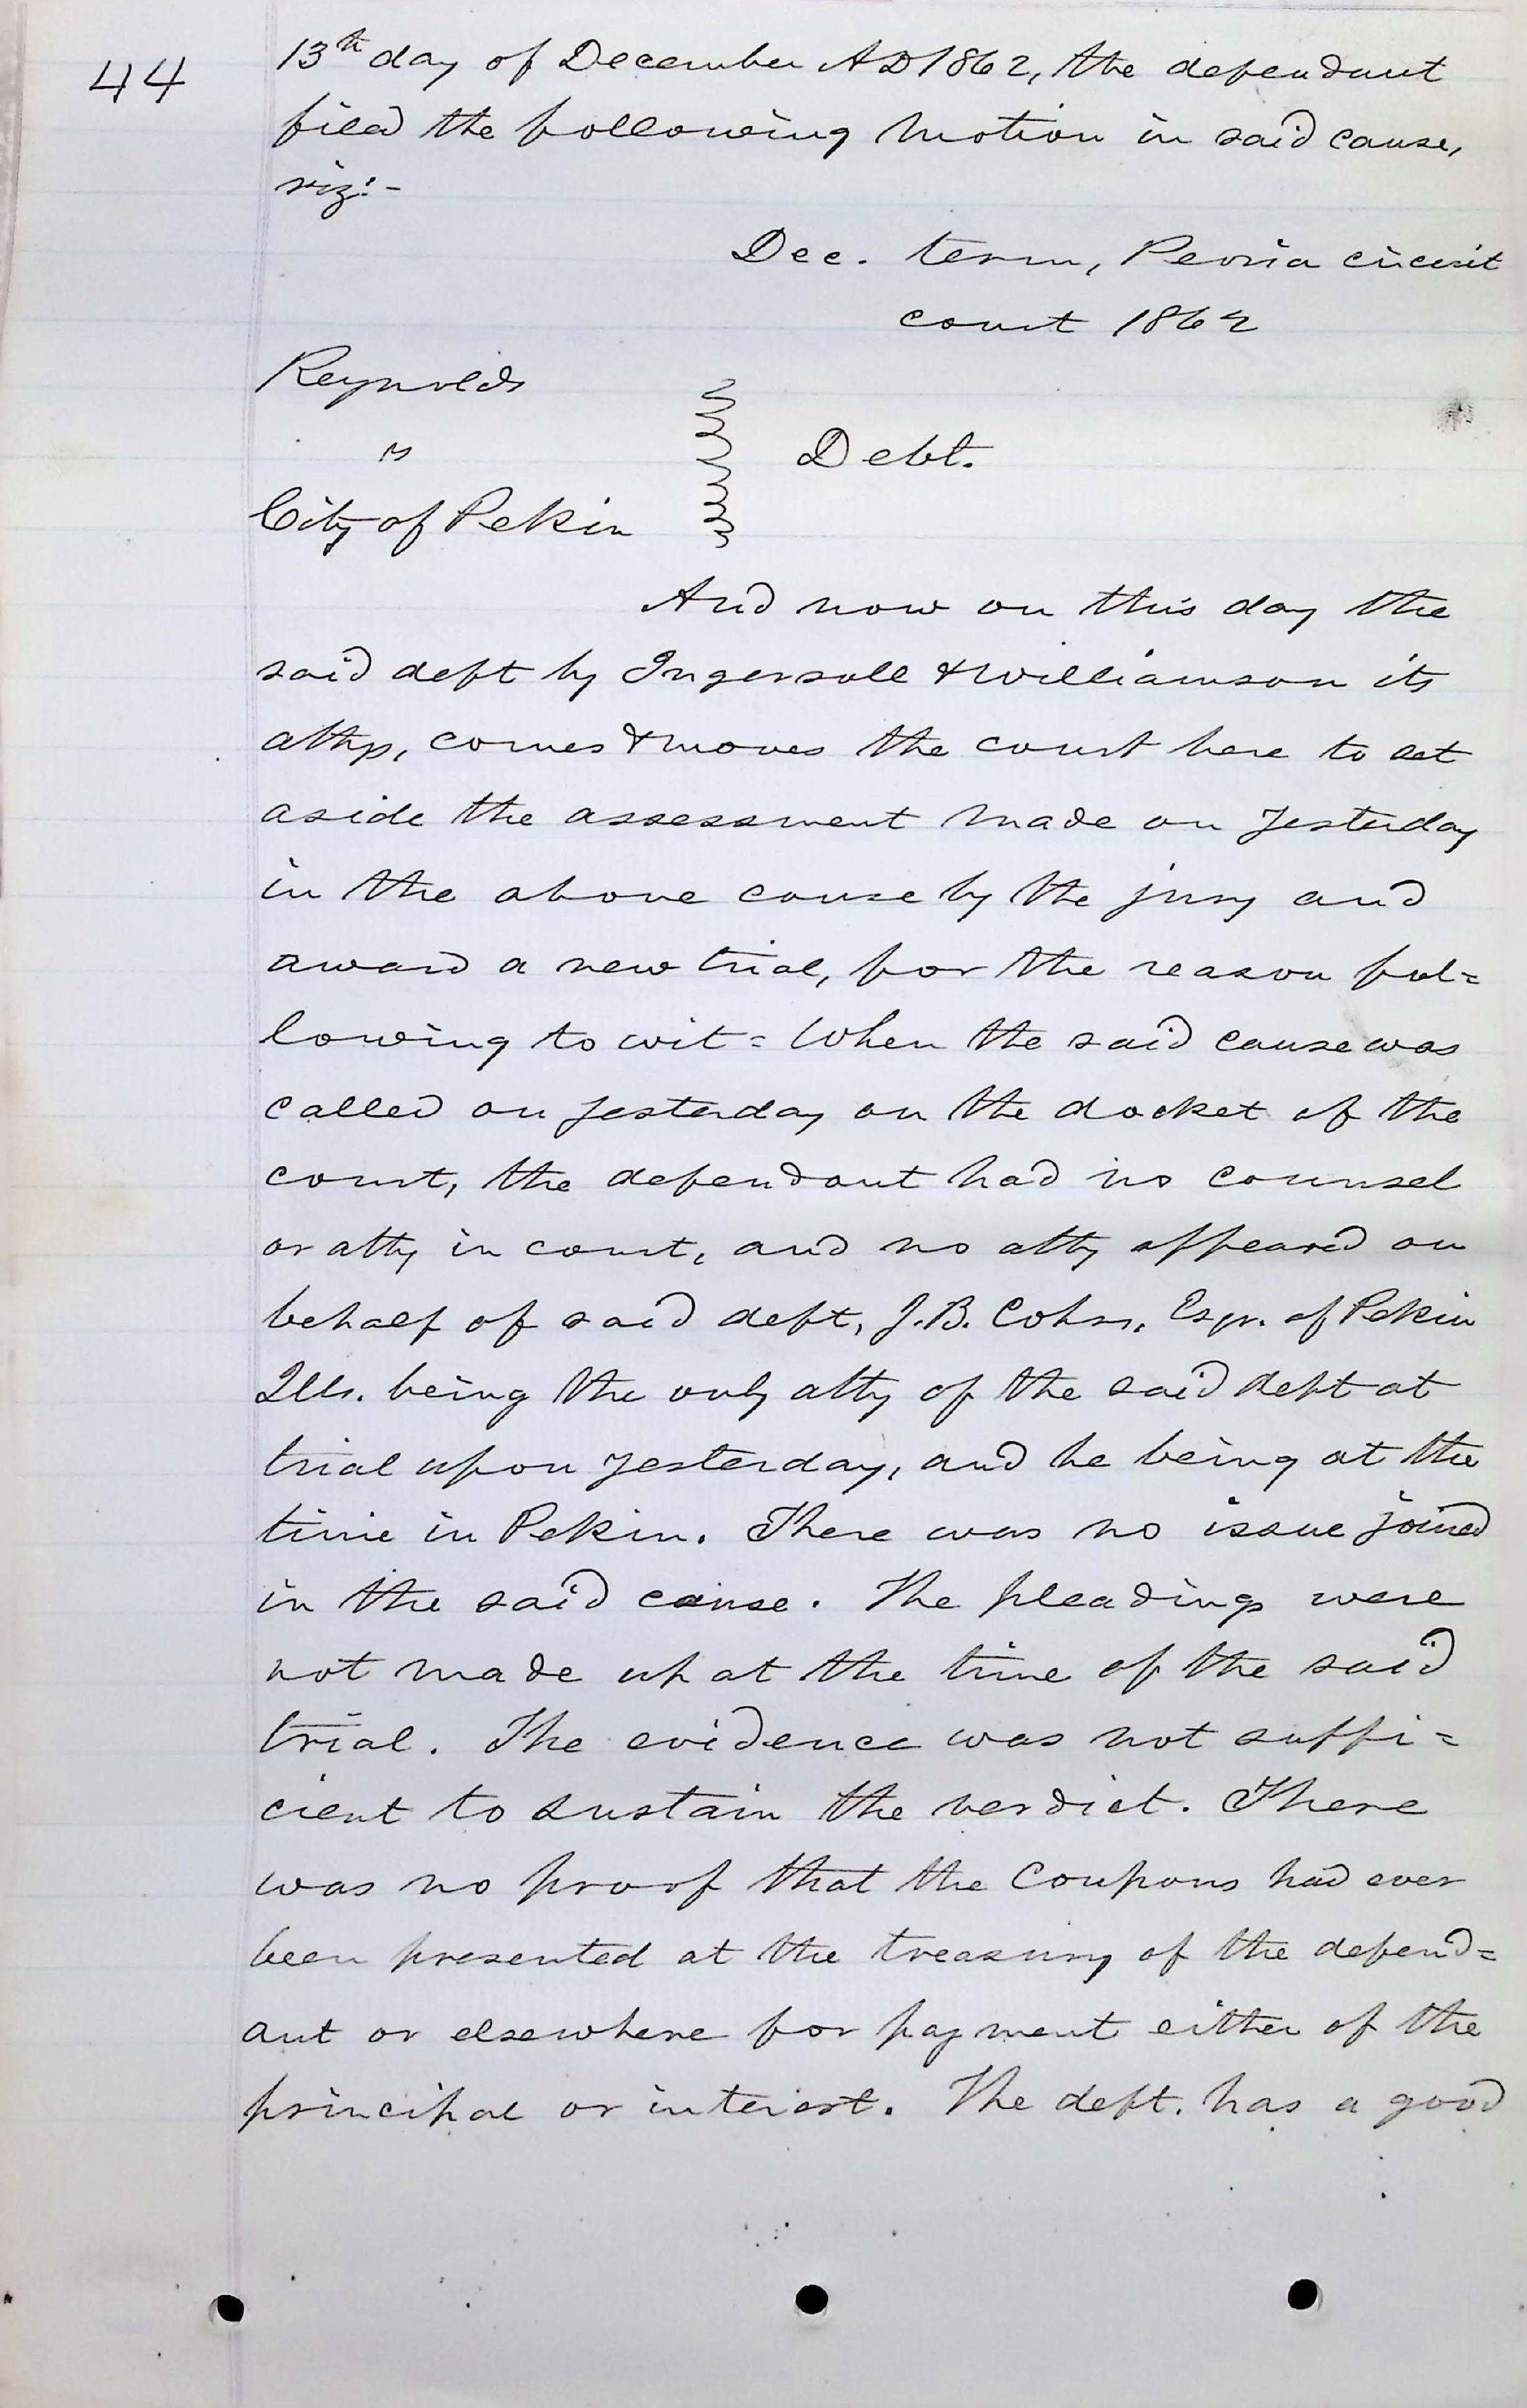 44
13th day of December AD 1862, the defendant
filed the following motion in said cause,
viz:-
Dec. term, Peoria circuit
court 1862
Reynolds
vs
City of Pekin
Debt.
And now on this day the
said deft by Ingersoll & Williamson its
attys, comes & moves the court here to set
aside the assessment made on yesterday
in the above cause by the jury and
award a new trial, for the reason fol=
lowing to wit = When the said cause was
called on yesterday on the docket of the
court, the defendant had no counsel
or atty in court, and no atty appeared on
behalf of said deft, J. B. Cohrs, Esqr. of Pekin
Ills. being the only atty of the said deft at
trial upon yesterday, and he being at the
time in Pekin. There was no issue joined
in the said cause. The pleadings were
not made up at the time of the said
trial. The evidence was not suffi=
cient to sustain the verdict. There
was no proof that the Coupons had ever
been presented at the treasury of the defend=
ant or elsewhere for payment either of the
principal or interest. The deft. has a good